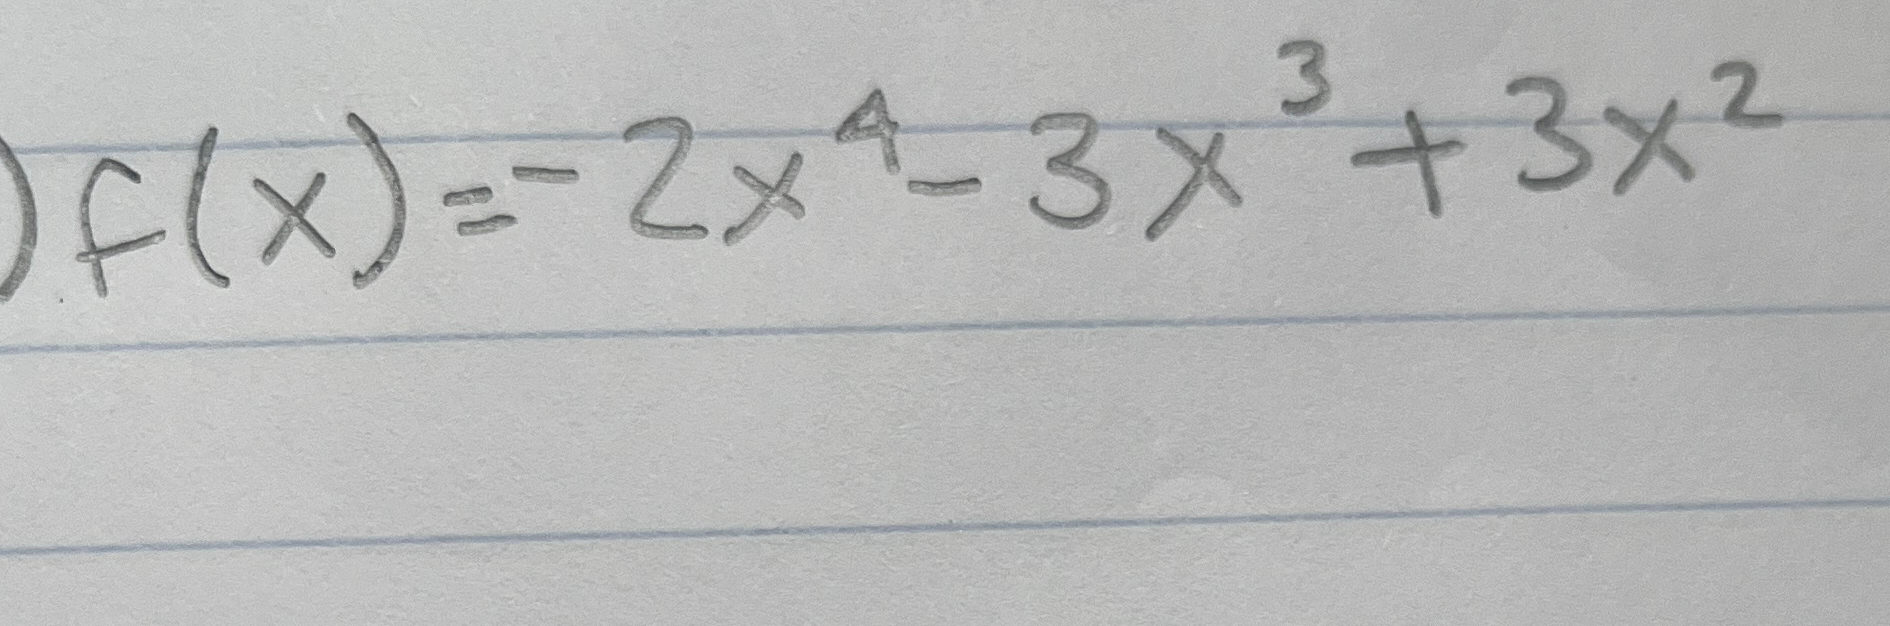 ) f(x) = -2x⁴ - 3x³ + 3x²